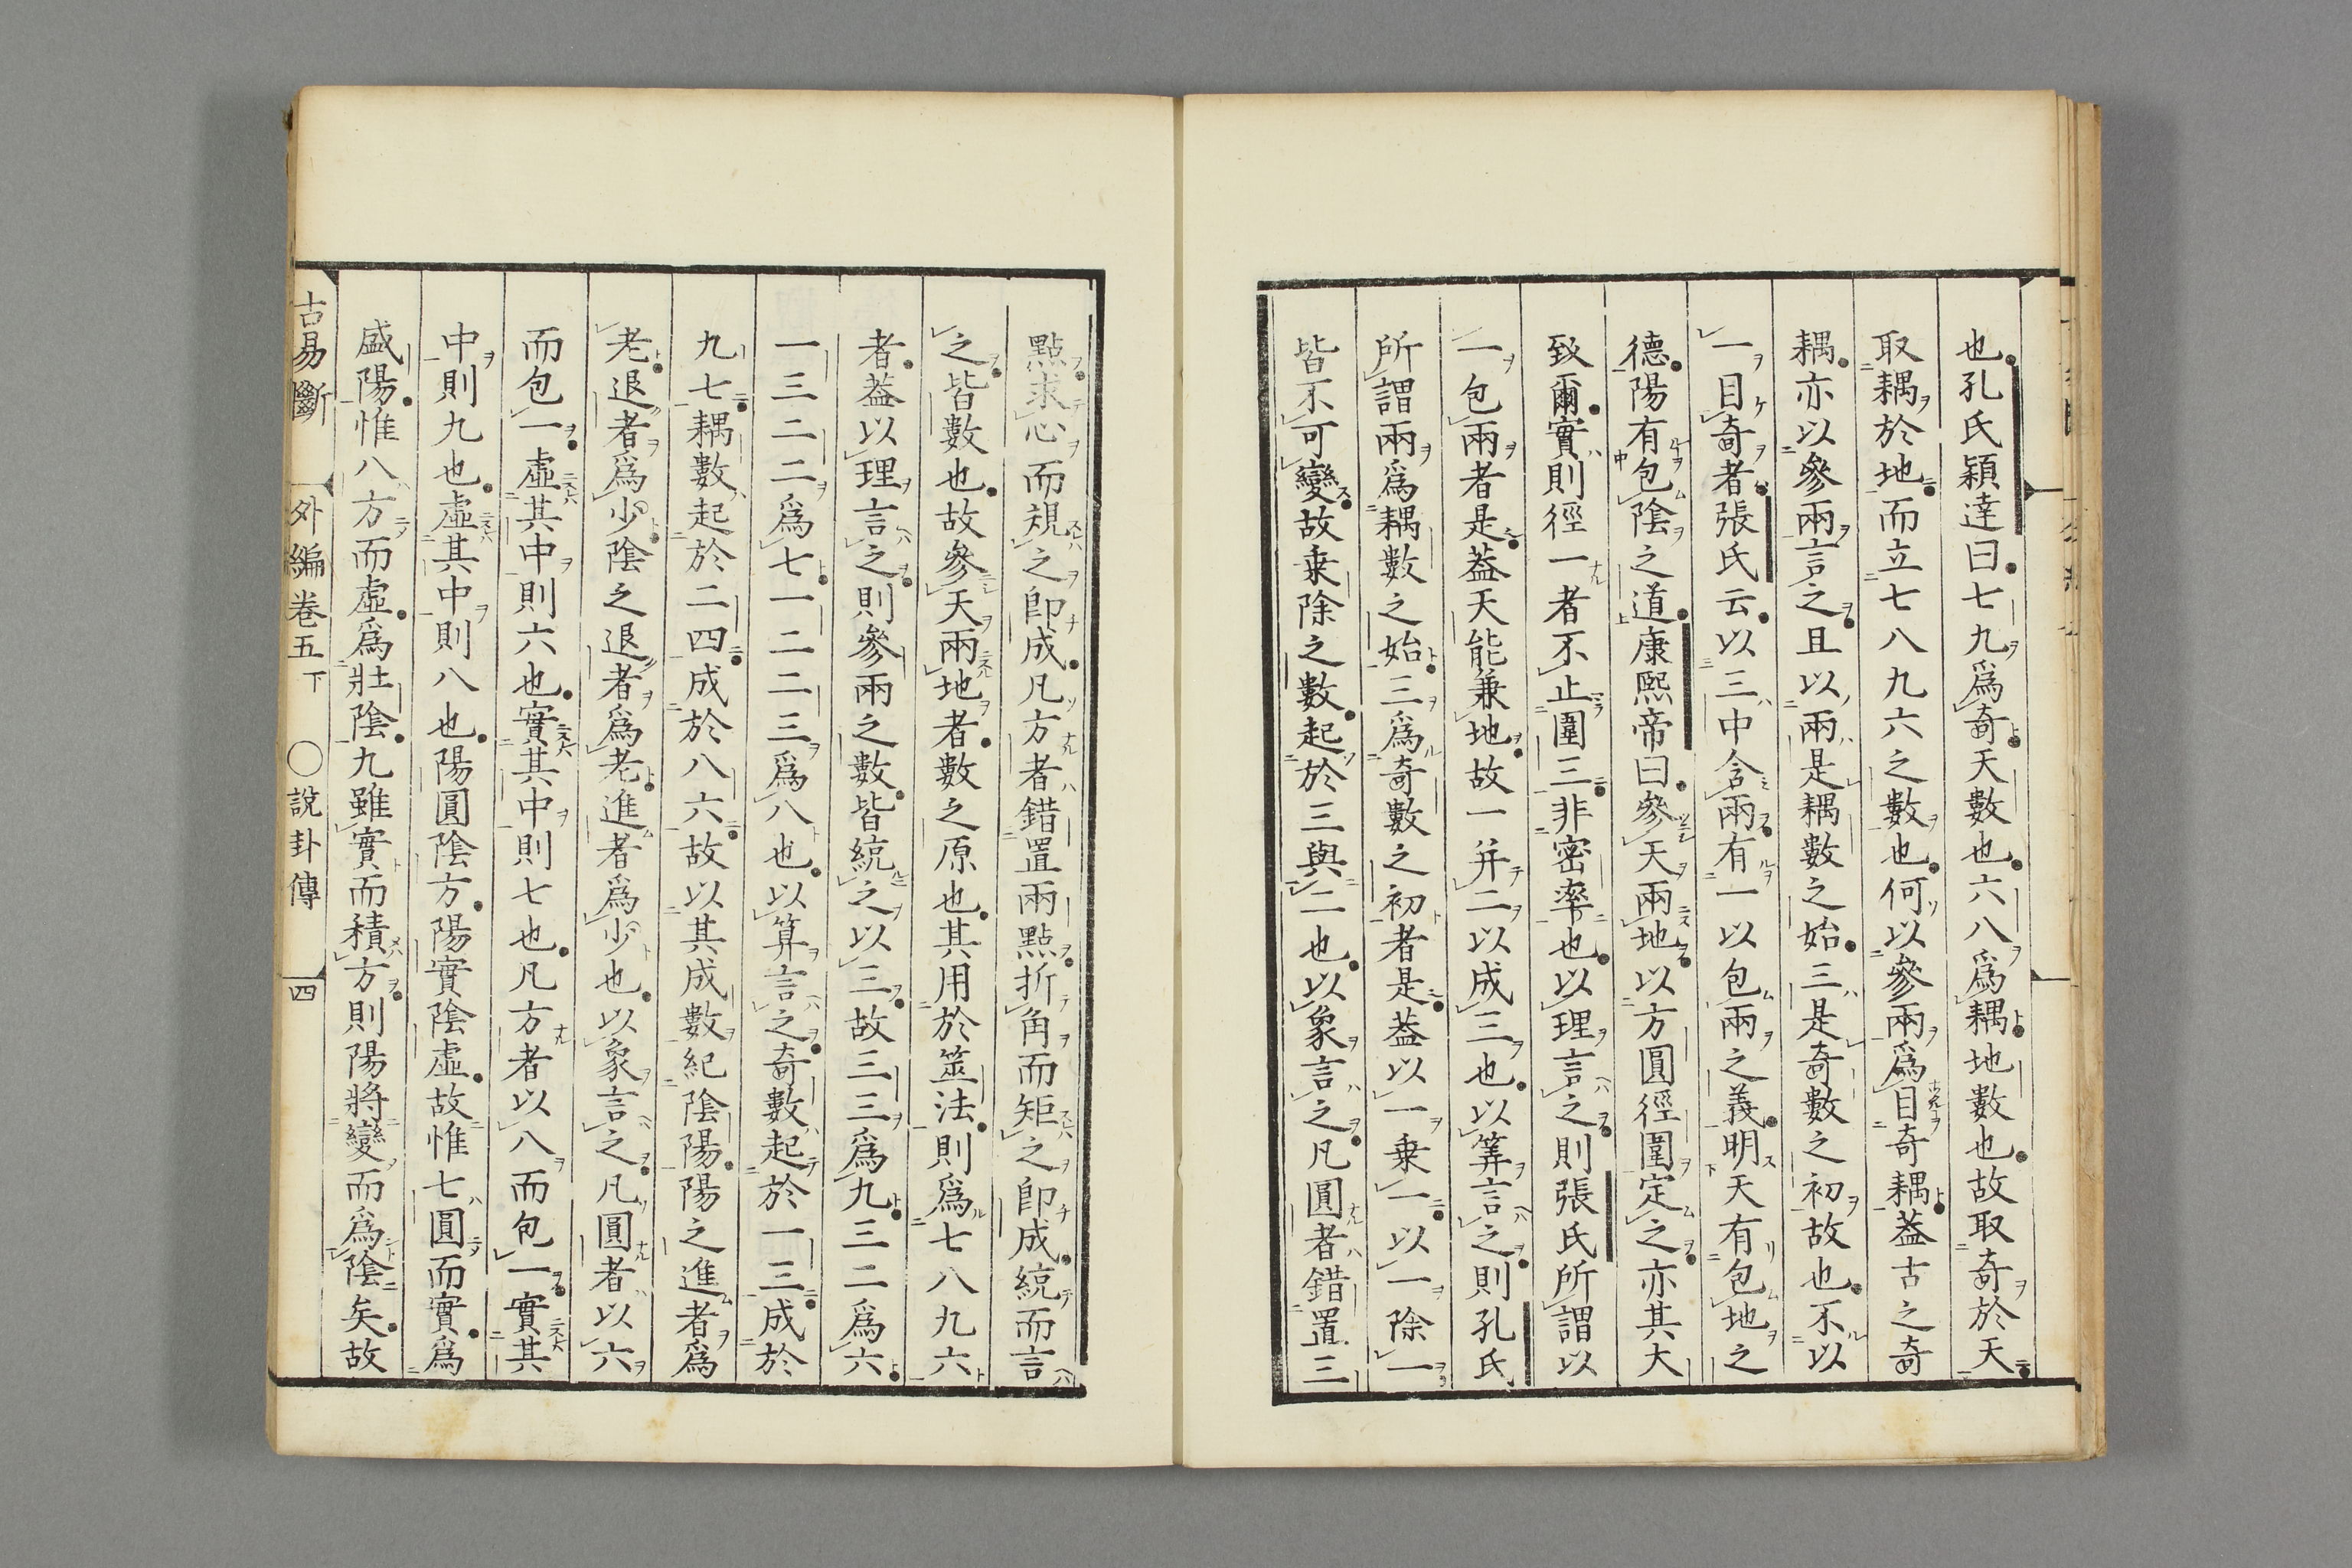 也孔氏穎達曰七九爲奇天數也六八爲耦地數也故取奇於天
取耦於地而立七八九六之數也何以參兩爲目奇耦蓋古之奇
耦亦以參兩言之且以兩是耦數之始三是奇數之初故也不以
一目奇者張氏云以三中含兩有一以包兩之義明天有包地之
德陽有包陰之道康熙帝曰參天兩地以方圓徑圍定之亦其大
致爾實則徑一者不止圍三非密率也以理言之則張氏所謂以
一包兩者是蓋天能兼地故一并二以成三也以筭言之則孔氏
所謂兩爲耦數之始三爲奇數之初者是蓋以一乗一以一除一
皆不可變故乗除之數起於三與二也以象言之凡圓者錯置三
點求心而規之卽成凡方者錯置兩點折角而矩之卽成統而言
之皆數也故參天兩地者數之原也其用於筮法則爲七八九六
者蓋以理言之則參兩之數皆統之以三故三三爲九三二爲六
一三二二爲七一二二三爲八也以算言之奇數起於一三成於
九七耦數起於二四成於八六故以其成數紀陰陽陽之進者爲
老退者爲少陰之退者爲老進者爲少也以象言之凡圓者以六
而包一虛其中則六也實其中則七也凡方者以八而包一實其
中則九也虛其中則八也陽圓陰方陽實陰虛故惟七圓而實爲
盛陽惟八方而虛爲壯陰九雖實而積方則陽將變而爲陰矣故
古易斷 外編卷五下 ○說卦傳 四